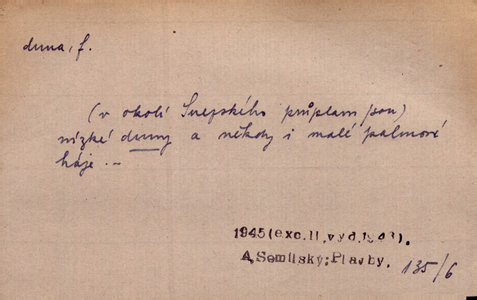 duna, f.
(v okolí Suezského průplavu jsou)
nízké duny a někdy i malé palmové
háje ..
1945(exc.II.vyd.1946).
A.Semilský;Plavby. 135/6